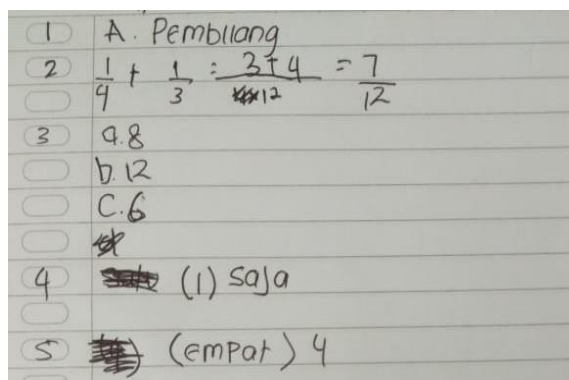 1 A. Pembilang
2 1/4 + 1/3 = 3+4/12 = 7/12
3 a. 8
b. 12
C. 6
4 (1) saja
5 (empat) 4